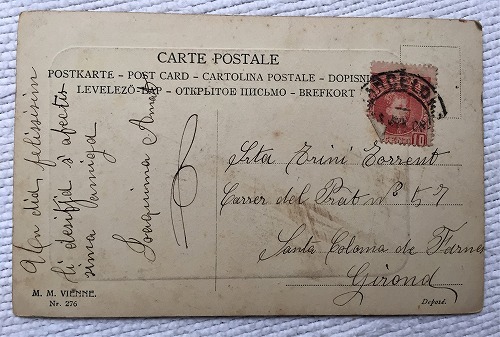 CARTE POSTALE
POSTKARTE – POST CARD – CARTOLINA POSTALE – DOPISNI
LEVELEZŐ-LAP – ОТКРЫТОЕ ПИСЬМО – BREFKORT
BARCELON
10
Un dia felissisim
li desitja s' afectis
sima amiga
Joaquima
Srta Trini Torrent
Carrer del Prat nº 57
Santa Coloma de Farne
Girond
M. M. VIENNE.
Nr. 276
Déposé.